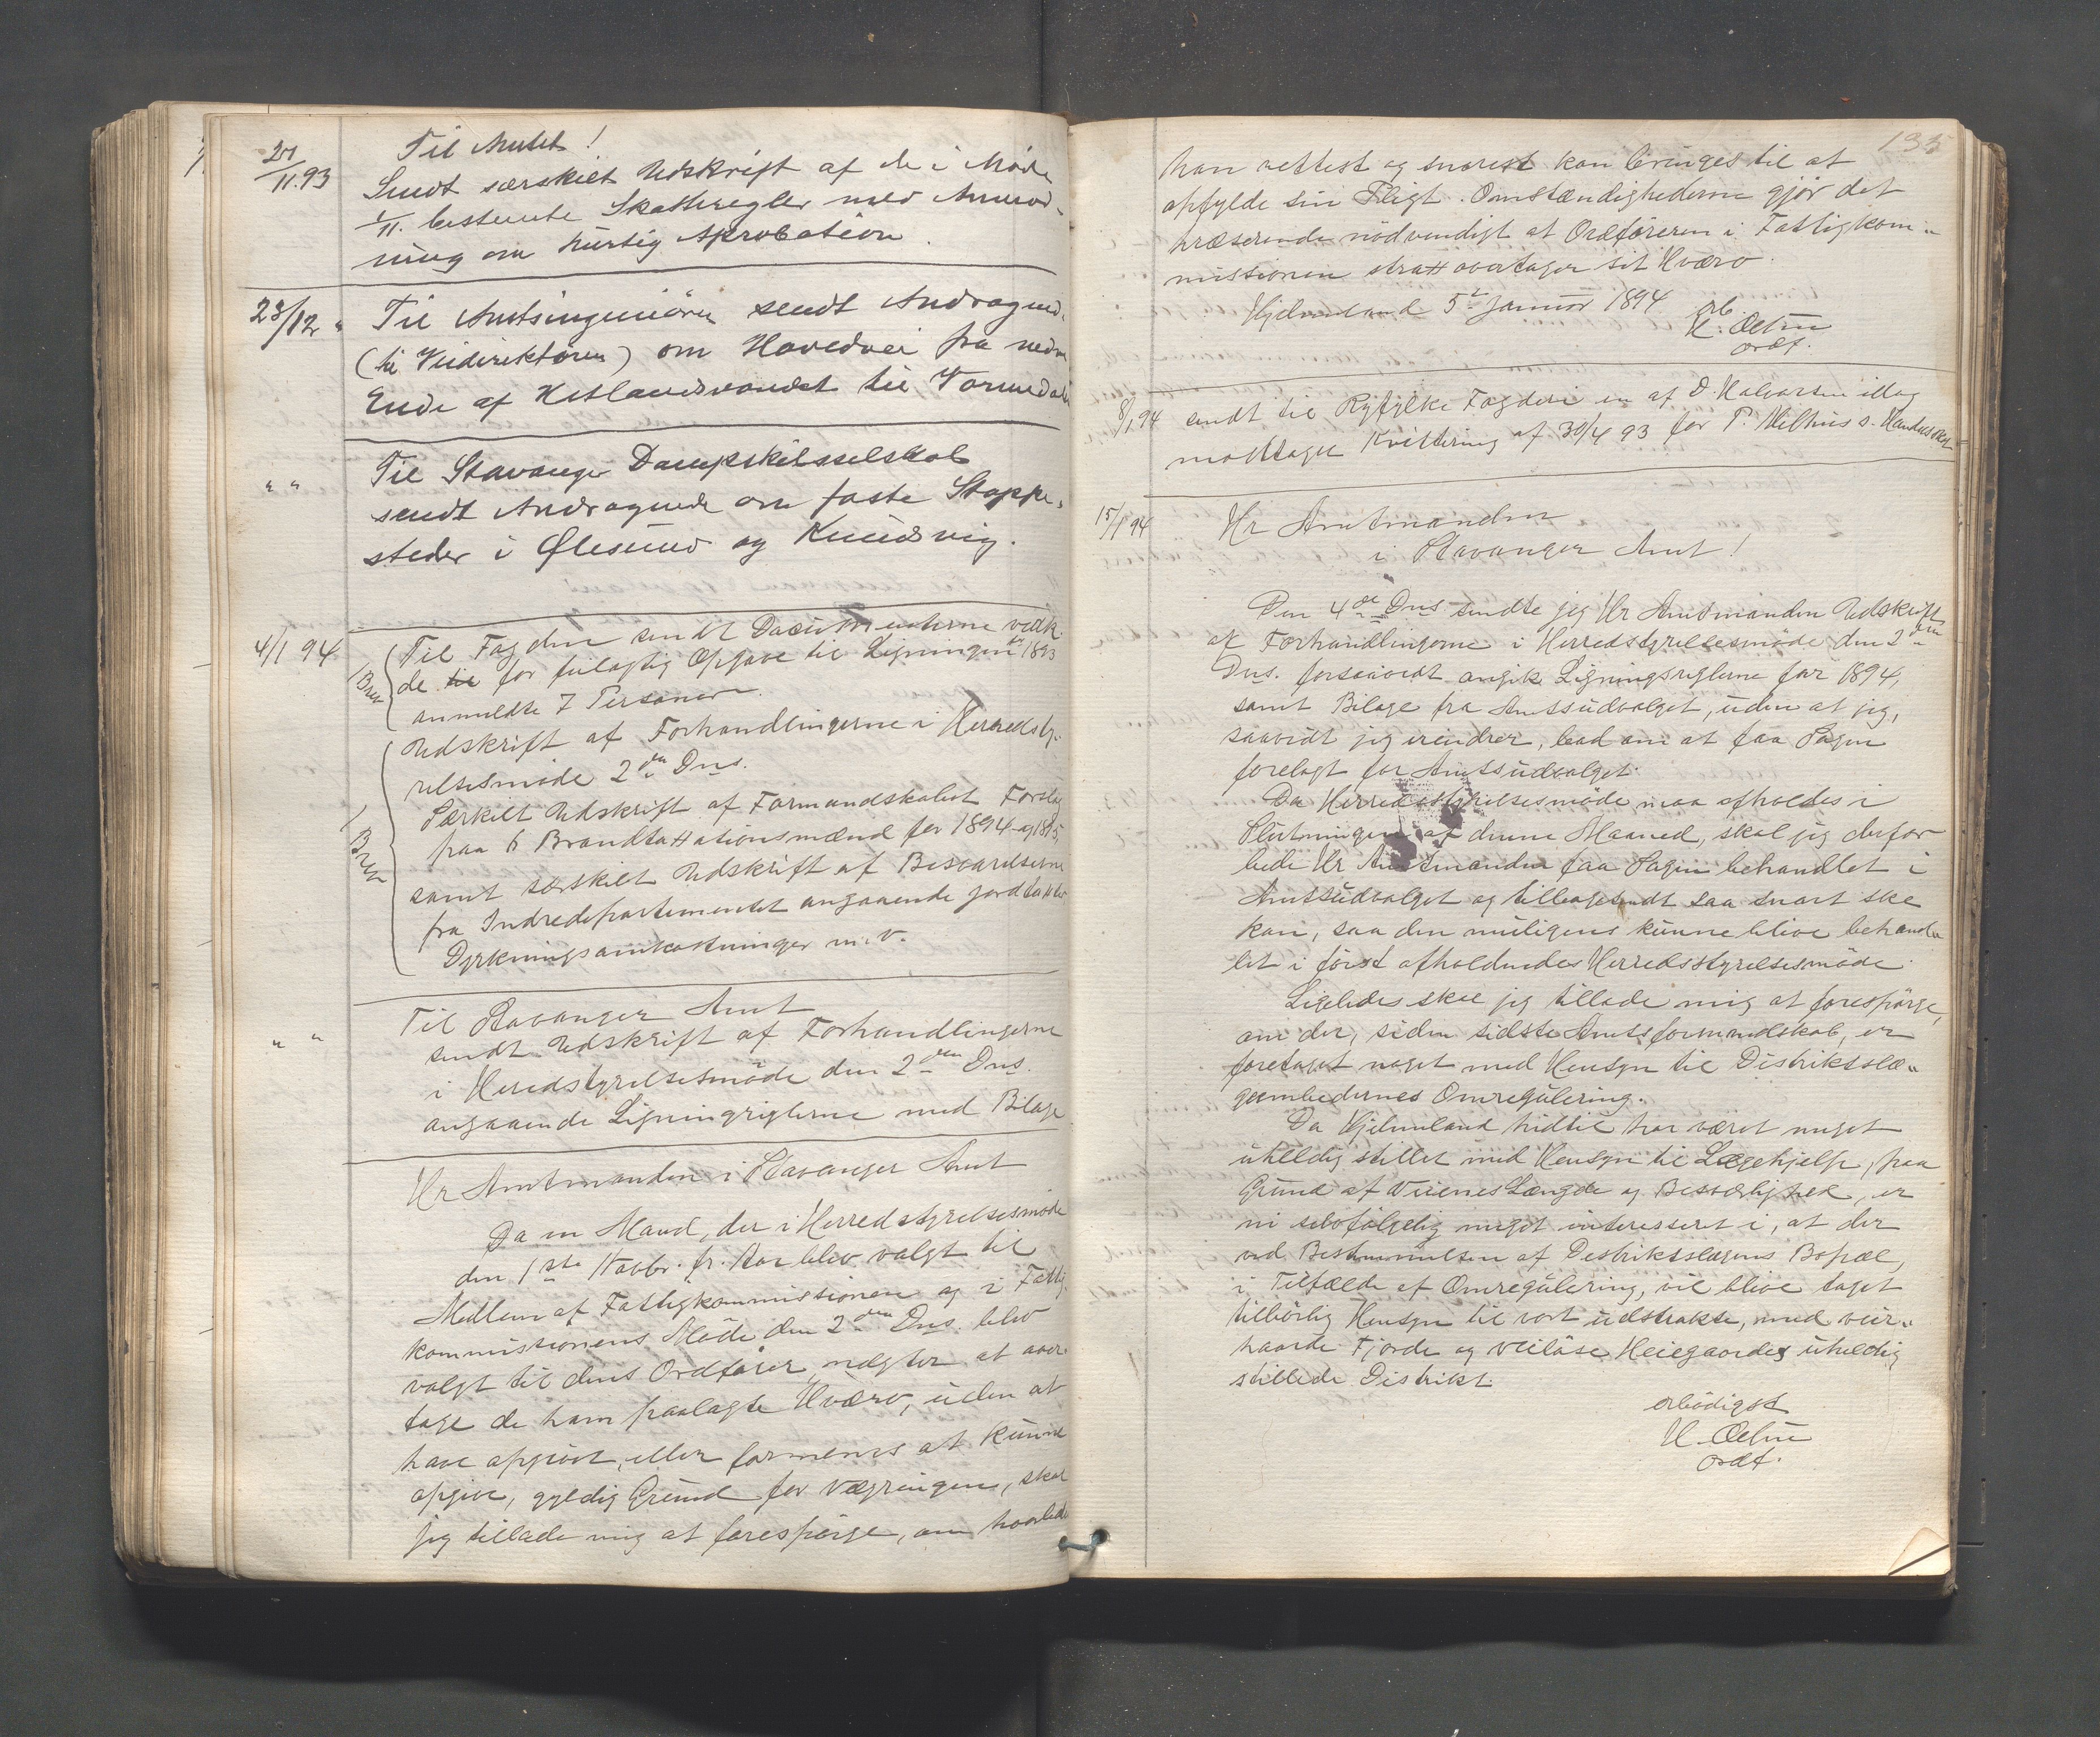 27/11.93 Til Amtet!
Sendt særskilt Udskrift af de i Møde
1/11. bestemte Skatteregler med Anmod-
ning om hurtig Aprobation.
23/12 " Til Amtsingeniøren sendt Andragend.
(til Veidirektøren) om Hovedvei fra nedre
Ende af Hetlandsvandet til Vormedalen
" " Til Stavanger Dampskibsselskab
sendt Andragende om faste Stoppe-
steder i Ølesund og Knudsvig.
4/1 94 Til Fogden sendt Documenterne vedk.
1 Brev de til for feilagtig Opgave til Ligningen for 1893
anmeldte 7 Personer.
Udskrift af Forhandlingerne i Herredsty-
relsesmøde 2den Dns.
Særkilt Udskrift af Formandskabets Forslag
1 Brev paa 6 Brandtaxationsmænd for 1894 og 1895,
samt særskilt Udskrift af Besvarelserne
fra Indredepartementet angaaende jordtaxter
Dyrkningsomkostninger m. v.
" " Til Stavanger Amt
sendt Udskrift af Forhandlingerne
i Heredstyrelsesmøde den 2den Dns.
angaaende Ligningreglerne med Bilage
Hr Amtmanden i Stavanger Amt
Da en Mand, der i Herredstyrelsesmøde
den 1ste Novbr. fr. Aar blev valgt til
Medlem af Fattigkommissionen og i Fattig-
kommissionens Møde den 2den Dns. blev
valgt til dens Ordfører, nægter at over-
tage de ham paalagte Hværv, uden at
have opgivet, eller formenes at kunne
opgive, gyldig Grund for Vægringen, skal
jeg tillade mig at forespørge, om hvorledes
135
han rettest og snarest kan bringes til at
opfylde sin Pligt. Omstændighederne gjør det
præserende nødvendigt at Ordføreren i Fattigkom-
missionen strax overtager sit Hværv.
Hjelmeland 5te Januar 1894 erb.
H. Oeltin
ordf.
8/1 94 sendt til Ryfylke Fogderi en af O. Halvorsen idag
modtagen Kvittering af 30/4 93 for P. Melhus s. Handelsskat
15/1 94 Hr Amtmanden
i Stavanger Amt!
Den 4de Dns sendte jeg Hr Amtmanden Udskrift
af Forhandlingerne i Herredstyrelsesmøde den 2den
Dns. forsaavidt angik Ligningsreglerne for 1894,
samt Bilage fra Amtsudvalget, uden at jeg,
saavidt jeg erindrer, bad om at faa Sagen
forelagt for Amtsudvalget.
Da Herredsstyrelsesmøde maa afholdes i
Slutningen af denne Maaned, skal jeg derfor
bede Hr Amtmanden faa Sagen behandlet i
Amtsudvalget og tilbagesendt saa snart ske
kan, saa den muligens kunne blive behand-
let i først afholdendes Herredsstyrelsesmøde.
Ligeledes skal jeg tillade mig at forespørge,
om der, siden sidste Amtsformandskab, er
foretaget noget med Hensyn til Distriktslæ-
geembedernes Omregulering.
Da Hjelmeland hidtil har været meget
uheldig stillet med Hensyn til Lægehjelp, paa
Grund af Veienes Længde og Besværlighed, er
vi selvfølgelig meget interesseret i, at der
ved Bestemmelsen af Distriktslægens Bopæl,
i Tilfælde af Omregulering, vil blive taget
tilbørlig Hensyn til vort udstrakte, med veir-
haarde Fjorde og veiløse Heiegaarde uheldig
stillede Distrikt.
erbødigst
H. Oeltin
ordf.